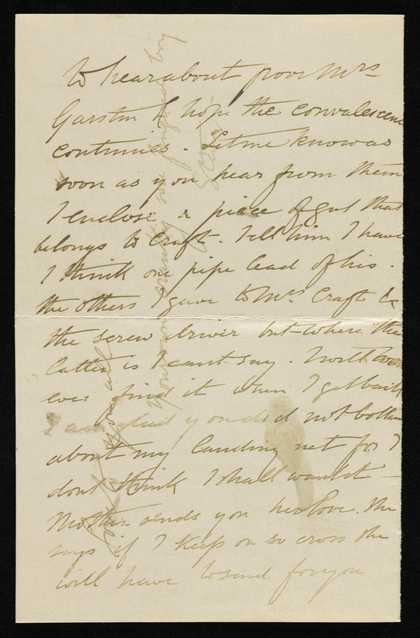 to hear about poor Mrs
Garstin & hope the convalescence
continues. Let me know as
soon as you hear from them
I enclose a piece of gut that
belongs to Craft. Tell him I have
I think one pipe lead of his.
the others I gave to Mrs Craft &
the screw driver but where the
latter is I cant say.
ever find it when I get back
I am glad you did not bother
about my landing net for I
dont think I shall want it
Mother sends you her love. She
says if I keep on so cross she
will have to send for you